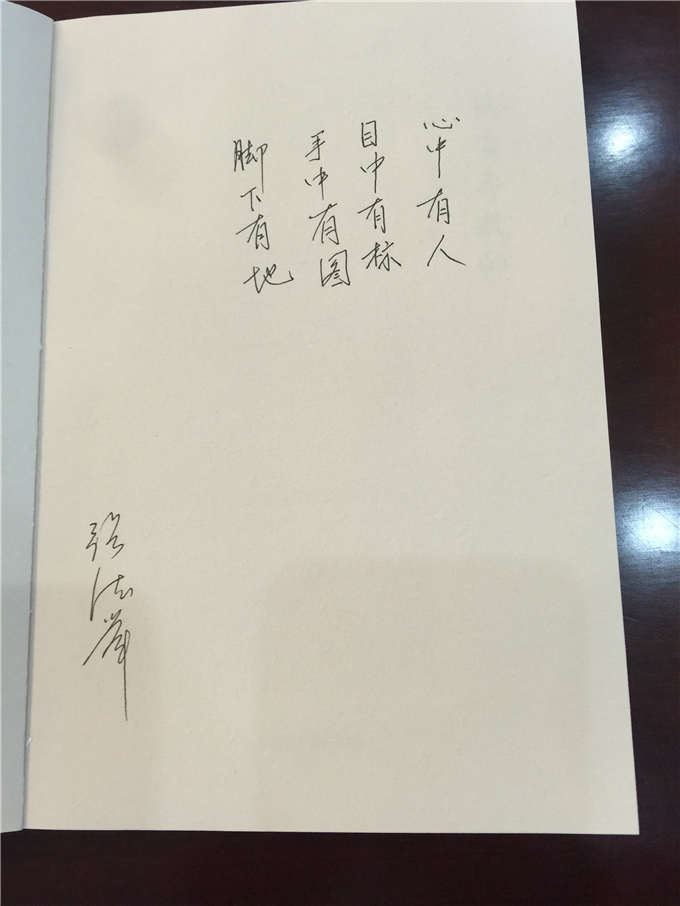 心中有人
目中有标
手中有图
脚下有地
张法岸